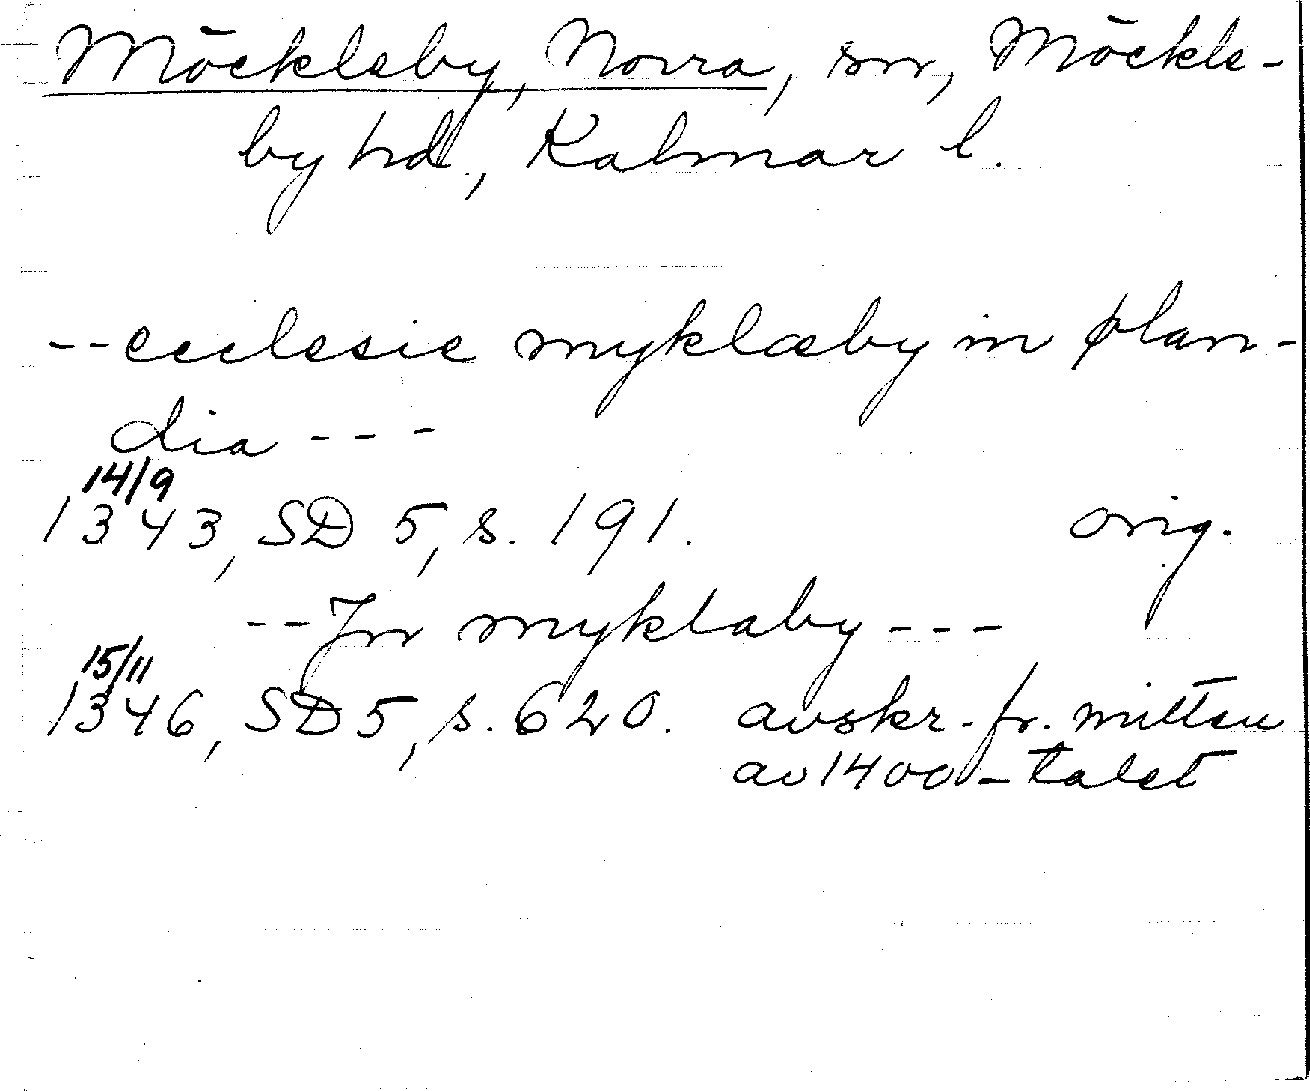 Möckleby, Norra, sn, Möckle-
by hd., Kalmar l.
--ecclesie myklæby in ølan-
dia ---
14/9
1343, SD 5, s. 191. orig.
--Jn myklaby ---
15/11
1346, SD 5, s. 620. avskr. fr. mitten
av 1400-talet